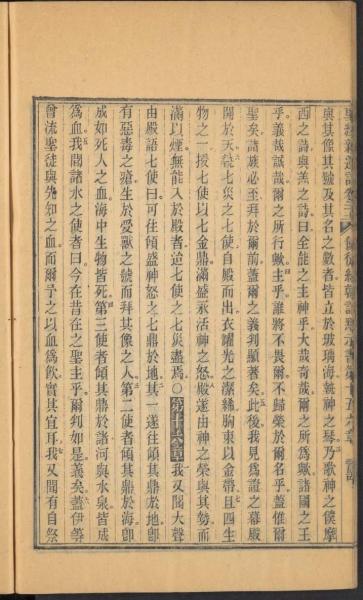 與其像其號及其名之數者皆立於玻璃海執神之琴乃歌神之僕摩
西之詩與羔之詩曰全能之主神乎大哉奇哉爾之所爲厥諸國之王
乎義哉誠哉爾之所行歟主乎誰將不畏爾不歸榮於爾名乎蓋惟爾
聖矣諸族必至拜於爾前蓋爾之義判顯著矣此後我見爲證之幕殿
開於天執七災之七使自殿而出衣耀光之潔絺胸束以金帶且四生
物之一授七使以七金鼎滿盛永活神之怒殿遂由神之榮與其勢而
滿以煙無能入於殿者迨七使之七災盡焉〇第十六章我又聞大聲
由殿語七使曰可往傾盛神怒之七鼎於地其一遂往傾其鼎於地卽
有惡毒之瘡生於受獸之號而拜其像之人第二使者傾其鼎於海卽
成如死人之血海中生物皆死第三使者傾其鼎於諸河與水泉皆成
爲血我聞諸水之使者曰今在昔在之聖主乎爾判如是義矣蓋伊等
曾流聖徒與先知之血而爾予之以血爲飲實其宜耳我又聞有自祭